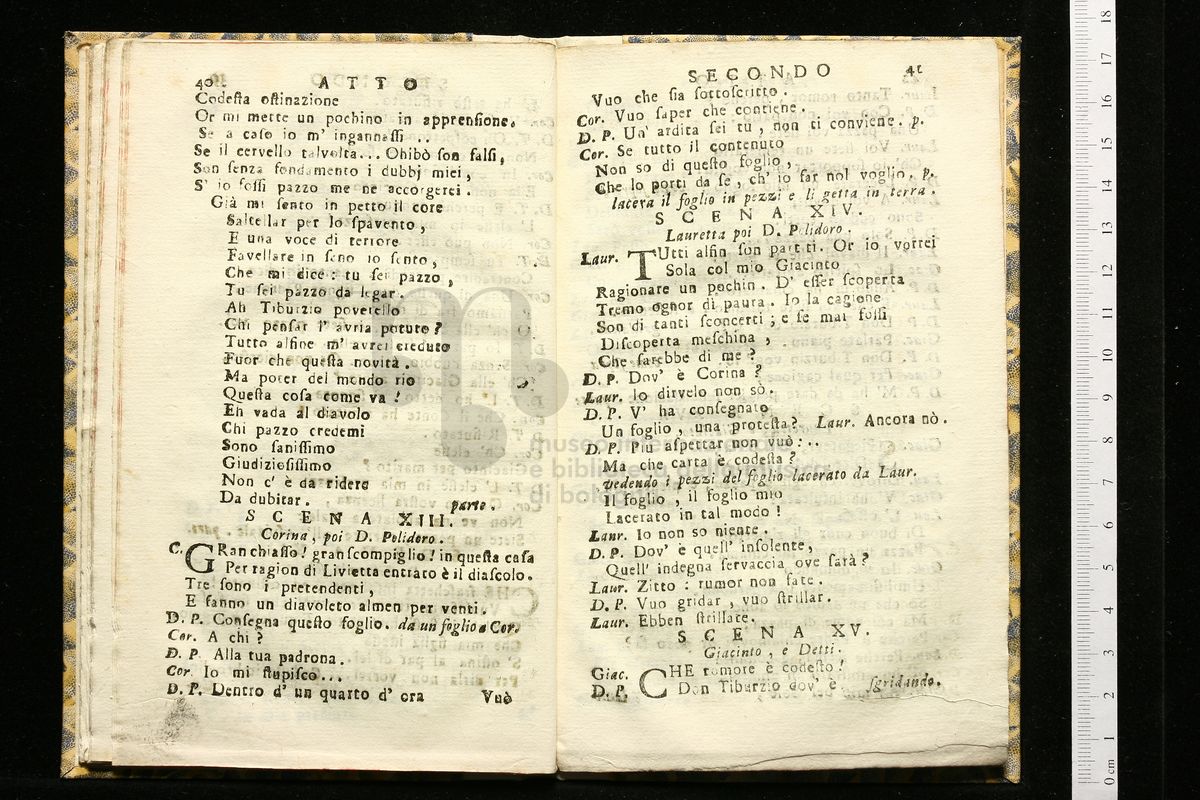 40 ATTO
Codeſta oſtinazione
Or mi mette un pochino in apprenſione.
Se a caſo io m' ingannaſſi ...
Se il cervello talvolta... Ohibò ſon falſi,
Son ſenza fondamento i dubbj miei,
S' io foſſi pazzo me ne accorgerei.
Già mi ſento in petto il core
Saltellar per lo ſpavento,
E una voce di terrore
Favellare in ſeno io ſento,
Che mi dice: tu ſei pazzo,
Tu ſei pazzo da legar.
Ah Tiburzio poverello
Chi penſar l' avria potuto?
Tutto alfine m' avrei creduto
Fuor che queſta novità.
Ma poter del mondo rio
Queſta coſa come va!
Eh vada al diavolo
Chi pazzo credemi
Sono ſaniſſimo
Giudizioſiſſimo
Non c' è da ridere
Da dubitar. parte.
SCENA XIII.
Corina, poi D. Polidoro.
C. GRan chiaſſo! gran ſcompiglio! in queſta caſa
Per ragion di Livietta entrato è il diaſcolo.
Tre ſono i pretendenti,
E fanno un diavoleto almen per venti.
D. P. Conſegna queſto foglio. da un foglio a Cor.
Cor. A chi?
D. P. Alla tua padrona.
Cor. Io mi ſtupiſco...
D. P. Dentro d' un quarto d' ora Vuò
SECONDO 41
Vuo che ſia ſottoſcritto.
Cor. Vuo ſaper che contiene.
D. P. Un' ardita ſei tu, non ti conviene. p.
Cor. Se tutto il contenuto
Non so di queſto foglio,
Che lo porti da ſe, ch' io far nol voglio. p.
lacera il foglio in pezzi e li getta in terra.
SCENA XIV.
Lauretta poi D. Polidoro.
Laur. TUtti alfin ſon partiti. Or io vorrei
Sola col mio Giacinto
Ragionare un pochin. D' eſſer ſcoperta
Tremo ognor di paura. Io la cagione
Son di tanti ſconcerti; e ſe mai foſſi
Diſcoperta meſchina,
Che ſarebbe di me?
D. P. Dov' è Corina?
Laur. Io dirvelo non sò.
D. P. V' ha conſegnato
Un foglio, una proteſta? Laur. Ancora nò.
D. P. Più aſpettar non vuò: ..
Ma che carta è codeſta?
vedendo i pezzi del foglio lacerato da Laur.
Il foglio, il foglio mio
Lacerato in tal modo!
Laur. Io non so niente.
D. P. Dov' è quell' inſolente,
Quell' indegna ſervaccia ove ſarà?
Laur. Zitto: rumor non fate.
D. P. Vuo gridar, vuo ſtrillar.
Laur. Ebben ſtrillate.
SCENA XV.
Giacinto, e Detti.
Giac. CHE romore è codeſto!
D. P. Don Tiburzio dov' è. ſgridando.